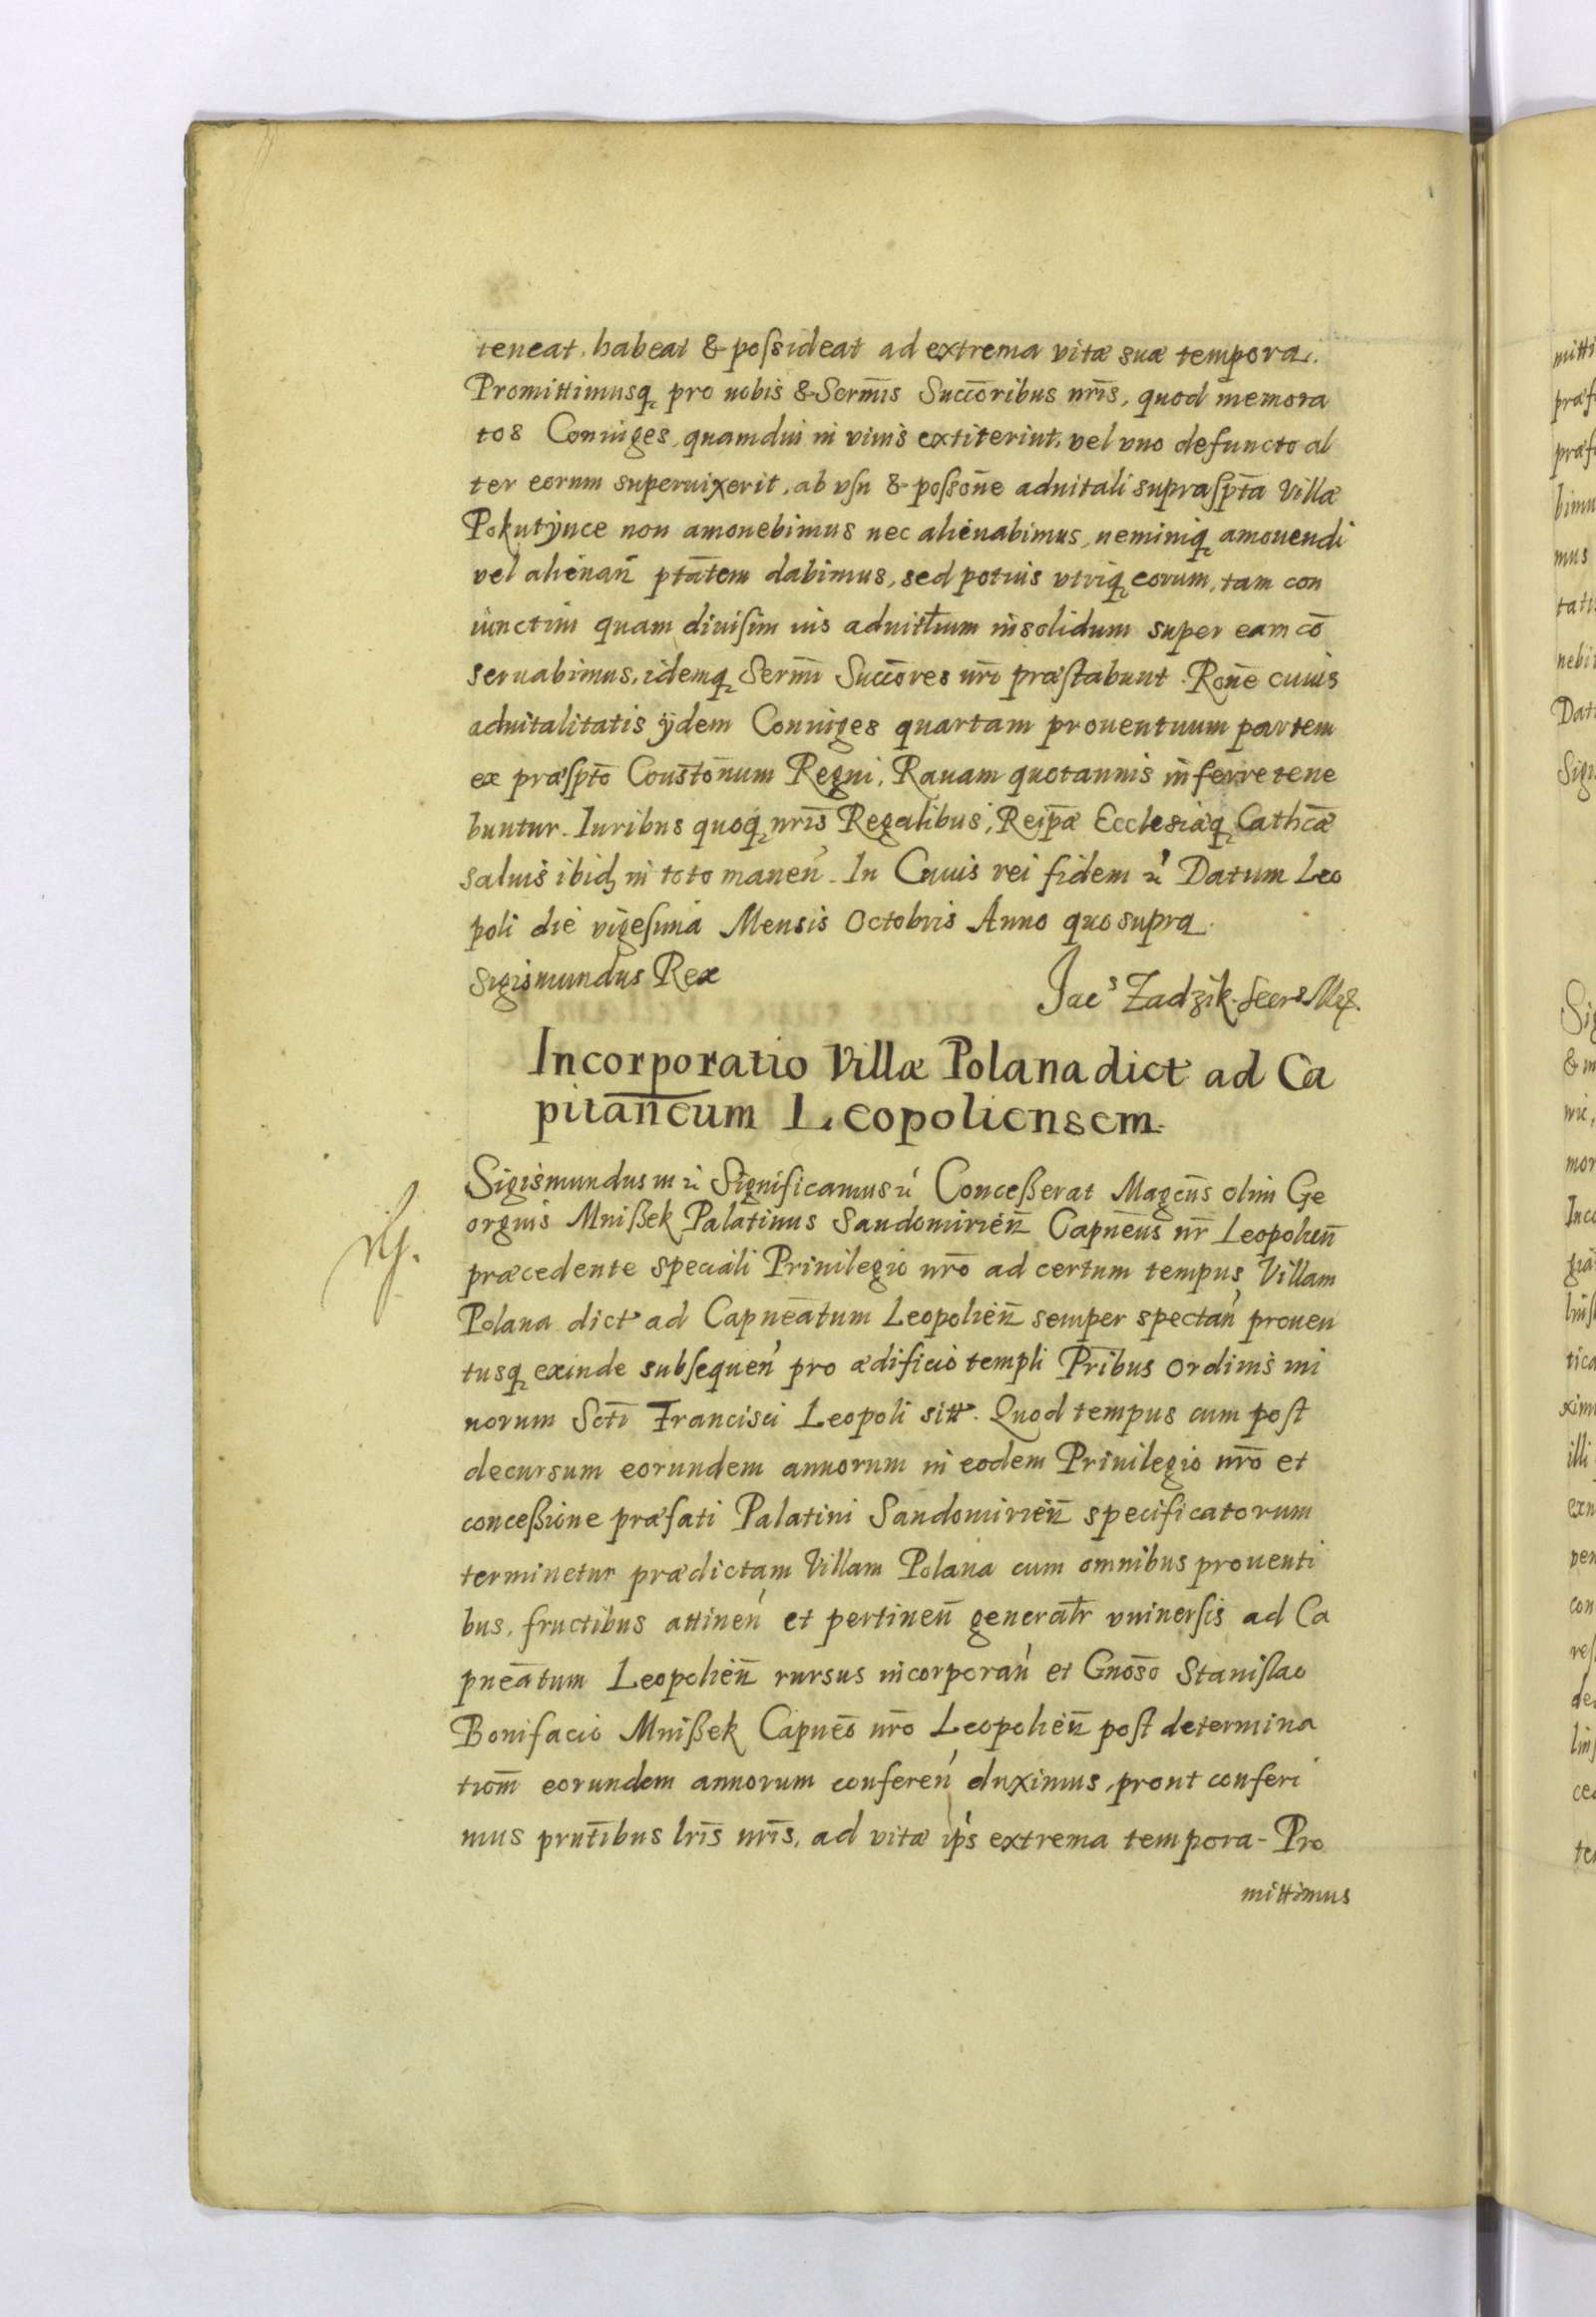 teneat, habeat & poſsideat ad extrema vitæ suæ tempora.
Promittimusq; pro nobis & Serm̄is Succōribus nr̄is, quod memora
tos Coniuges, quamdiu in viuis extiterint, vel vno defuncto al
ter eorum superuixerit, ab vſu & poſsoñe aduitali supraſpt̄a Villæ
Pokutÿnce non amonebimus nec alienabimus, neminiq; amouendi
vel alienan̄ ptātem dabimus, sed potius vtriq; eorum, tam con
iunctim quam diuiſim ius aduitl̄ium insolidum super eam cō
seruabimus, idemq; Serm̄i Succōres nr̄i præſtabunt. Roñe cuius
aduitalitatis ÿdem Coniuges quartam prouentuum partem
ex præſpt̄o Const̄onum Regni, Rauam quotannis inferre tene
buntur. Iuribus quoq; nr̄is Regalibus, Reip̄æ Ecclesiæq; Cathc̄æ
saluis ibid; in toto manen̄. In Cuius rei fidem &c Datum Leo
poli die vigeſima Mensis Octobris Anno quo supra.
Sigismundus Rex
Jacs Zadzik Secrs Mſ.
Incorporatio Villæ Polana dict ad Ca
pitan̄eum Leopoliensem.
Sigismundus III &c Significamus &c Conceßerat Magcus̄ olim Ge
orgius Mnißek Palatinus Sandomirien̄ Capnēus nr̄ Leopolien̄
præcedente speciali Priuilegio nr̄o ad certum tempus, Villam
Polana dict ad Capneātum Leopolien̄ semper spectan̄ prouen
tusq; exinde subſequen̄ pro ædificio templi Pr̄ibus Ordinis mi
norum Sctī Francisci Leopoli sitt. Quod tempus cum poſt
decursum eorundem annorum in eodem Priuilegio nr̄o et
conceßione præfati Palatini Sandomirien̄ specificatorum
terminetur prædictam Villam Polana cum omnibus prouenti
bus, fructibus attinen̄ et pertinen̄ generatr̄ vniuerſis ad Ca
pneātum Leopolien̄ rursus incorporan̄ et Gnosō Staniſlao
Bonifacio Mnißek Capneō nr̄o Leopolien̄ poſt determina
tiom̄ eorundem annorum conferen̄ duximus, prout conferi
mus prnt̄ibus lr̄is nr̄is, ad vitæ ip̄s extrema tempora - Pro
mittimus